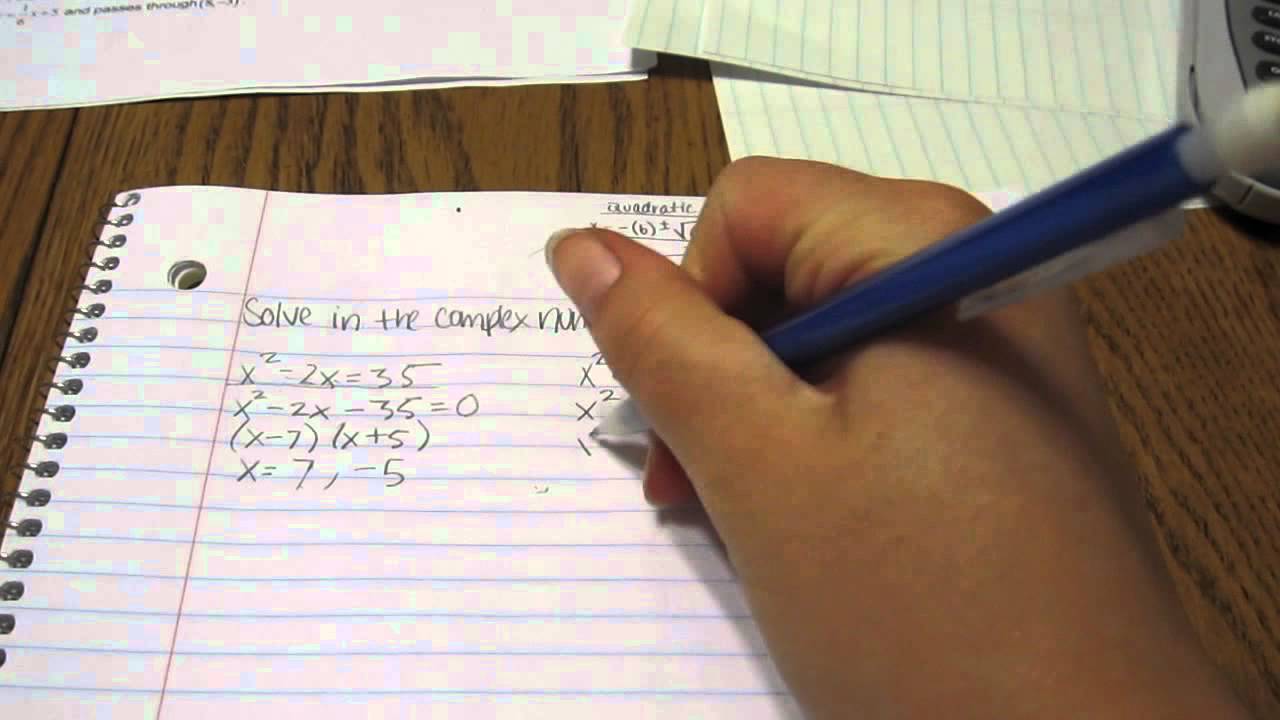 and passes through
Quadratic
-(b) ± √
Solve in the complex
x² - 2x = 35
x² - 2x - 35 = 0
(x-7) (x+5)
x = 7, -5
x²
x²